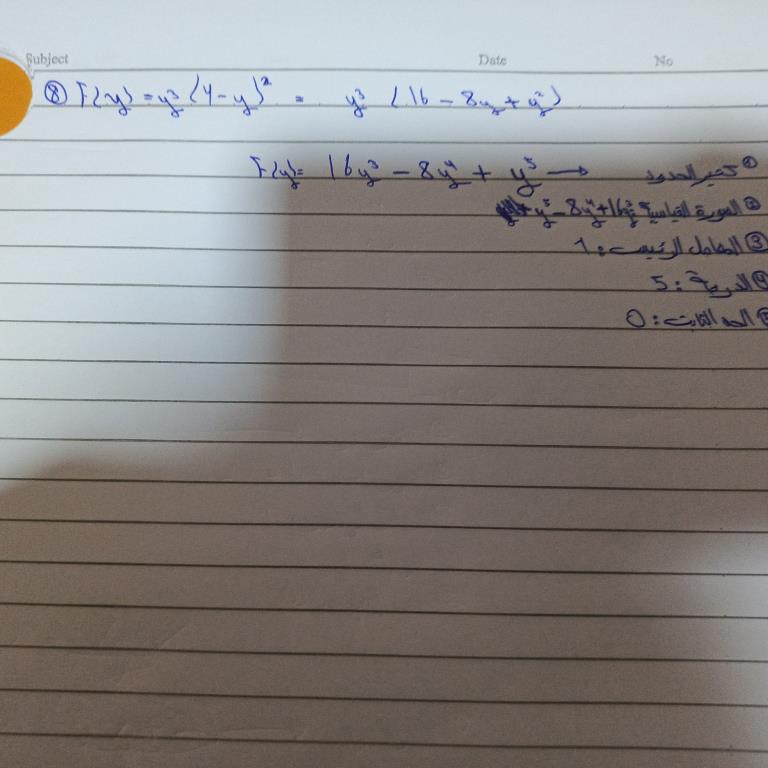 Subject Date No
⑧ F(y) = y³ (4 - y)² = y³ (16 - 8y + y²)
F(y) = 16y³ - 8y⁴ + y⁵ → ① كثير الحدود
② الصورة القياسية: y⁵ - 8y⁴ + 16y³
③ المعامل الرئيسي: 1
④ الدرجة: 5
⑤ الحد الثابت: 0